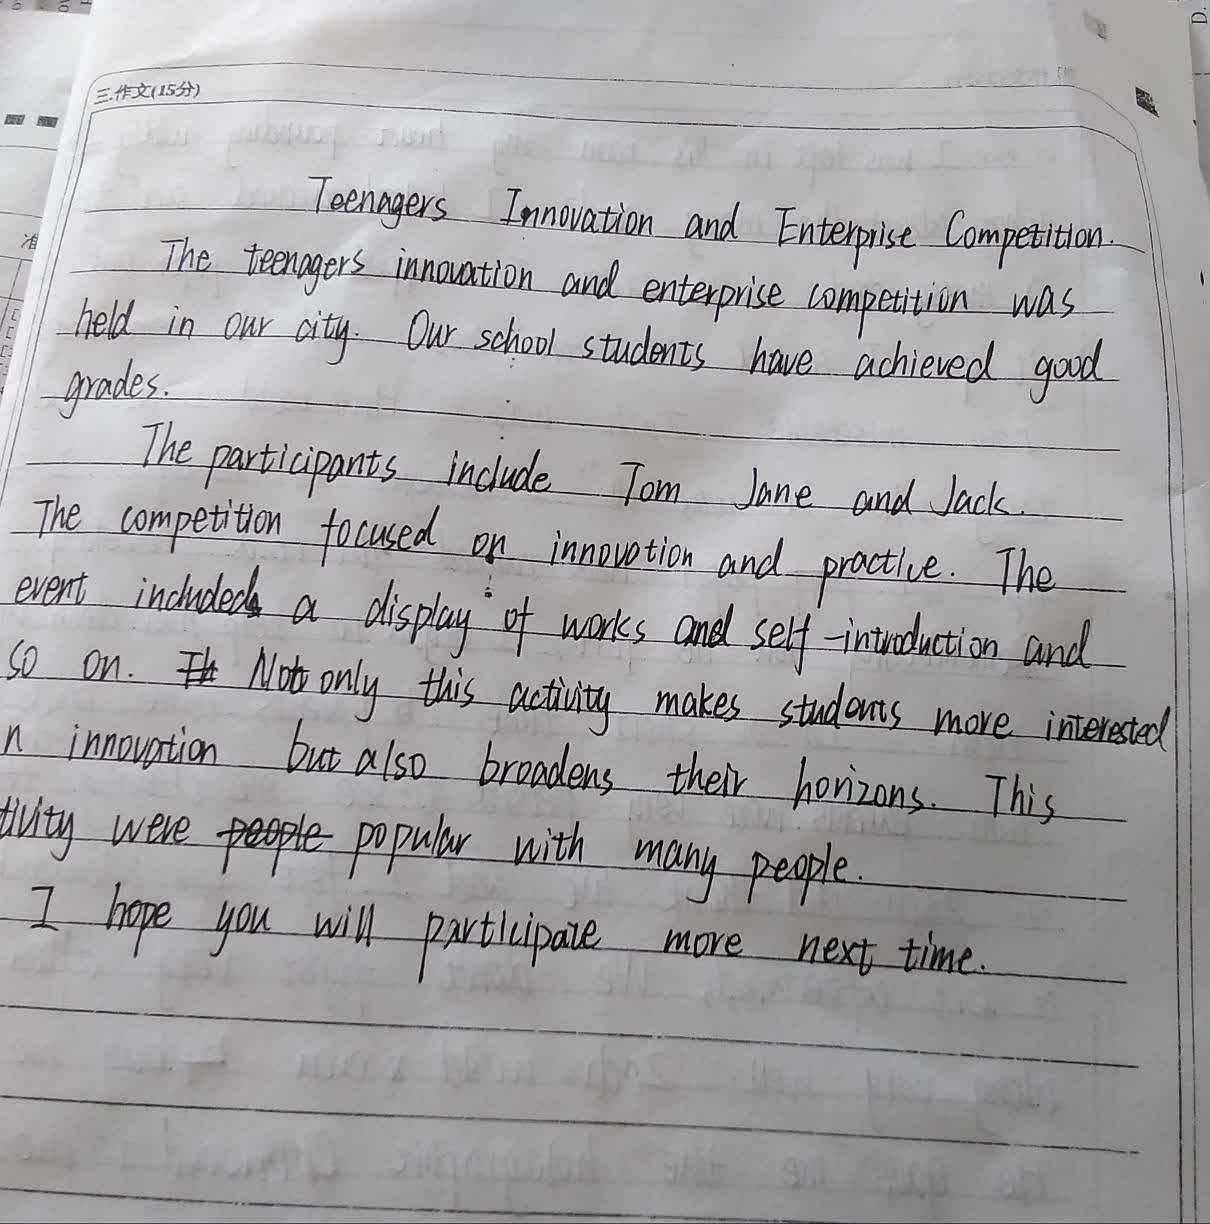 三.作文(15分)
Teenagers Innovation and Enterprise Competition.
The teenagers innovation and enterprise competition was
held in our city. Our school students have achieved good
grades.
The participants include Tom Jane and Jack.
The competition focused on innovation and practice. The
event included a display of works and self-introduction and
so on. Not only this activity makes students more interested
n innovation but also broadens their horizons. This
tivity were people popular with many people.
I hope you will participate more next time.
准
D.